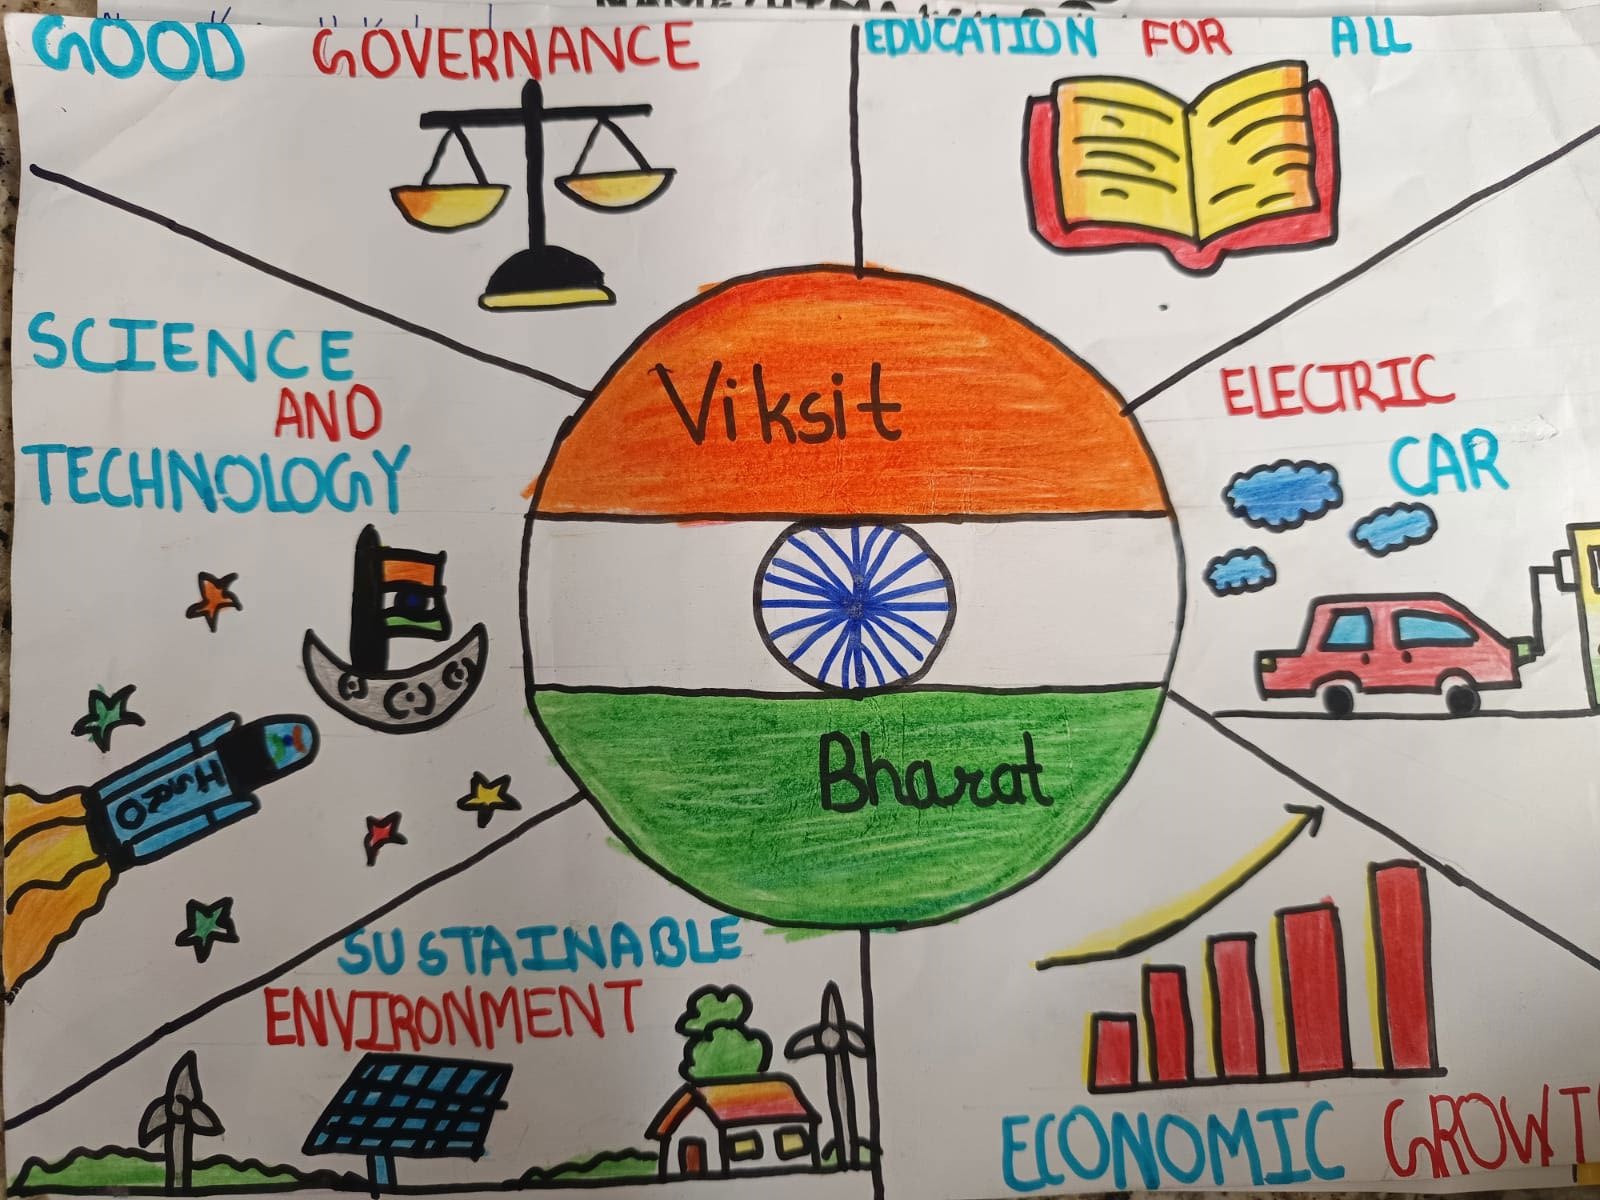 GOOD GOVERNANCE
EDUCATION FOR ALL
SCIENCE
AND
TECHNOLOGY
Viksit
Bharat
ELECTRIC
CAR
SUSTAINABLE
ENVIRONMENT
ECONOMIC GROWT